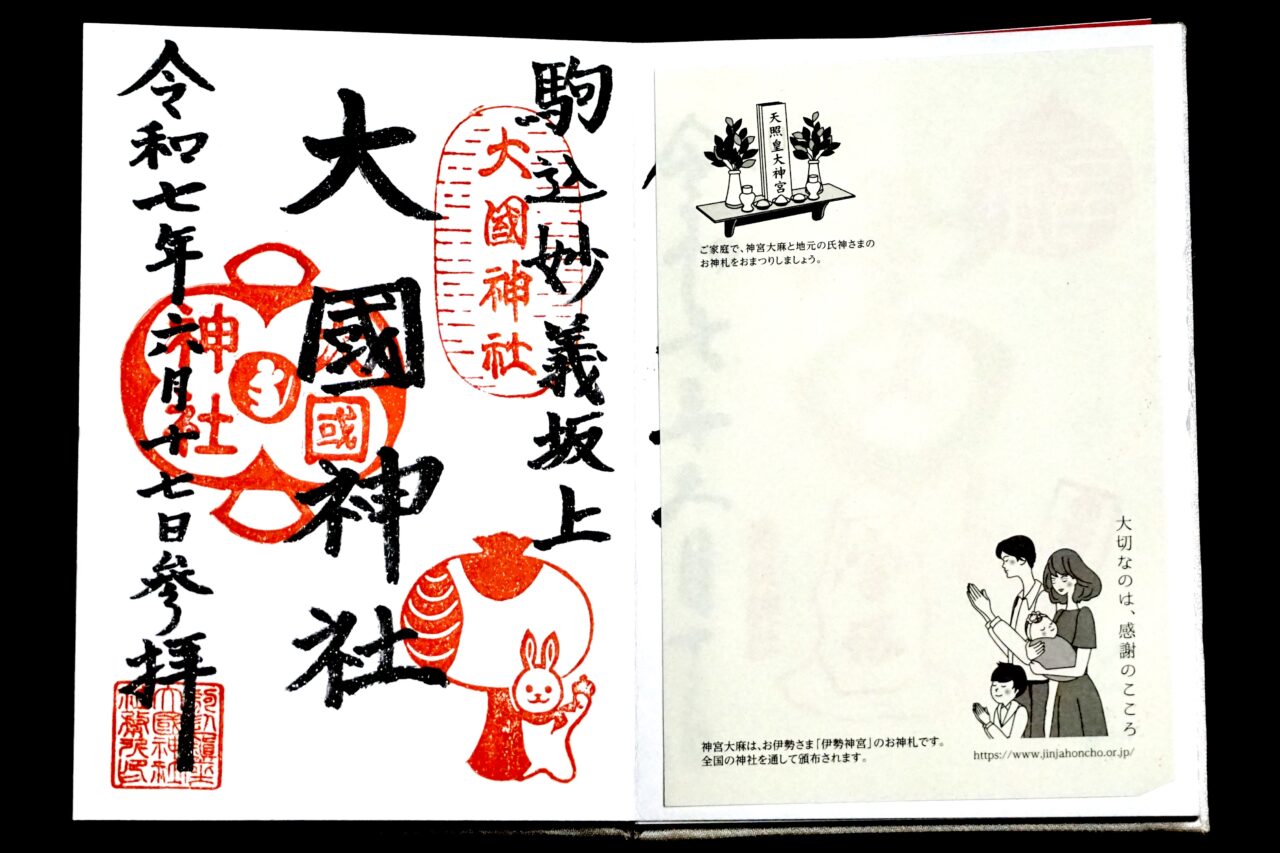 駒込妙義坂上
大國神社
大國神社
令和七年六月十七日參拝
神社
大國
天照皇大神宮
ご家庭で、神宮大麻と地元の氏神さまの
お神札をおまつりしましょう。
大切なのは、感謝のこころ
神宮大麻は、お伊勢さま「伊勢神宮」のお神札です。
全国の神社を通して頒布されます。
https://www.jinjahoncho.or.jp/